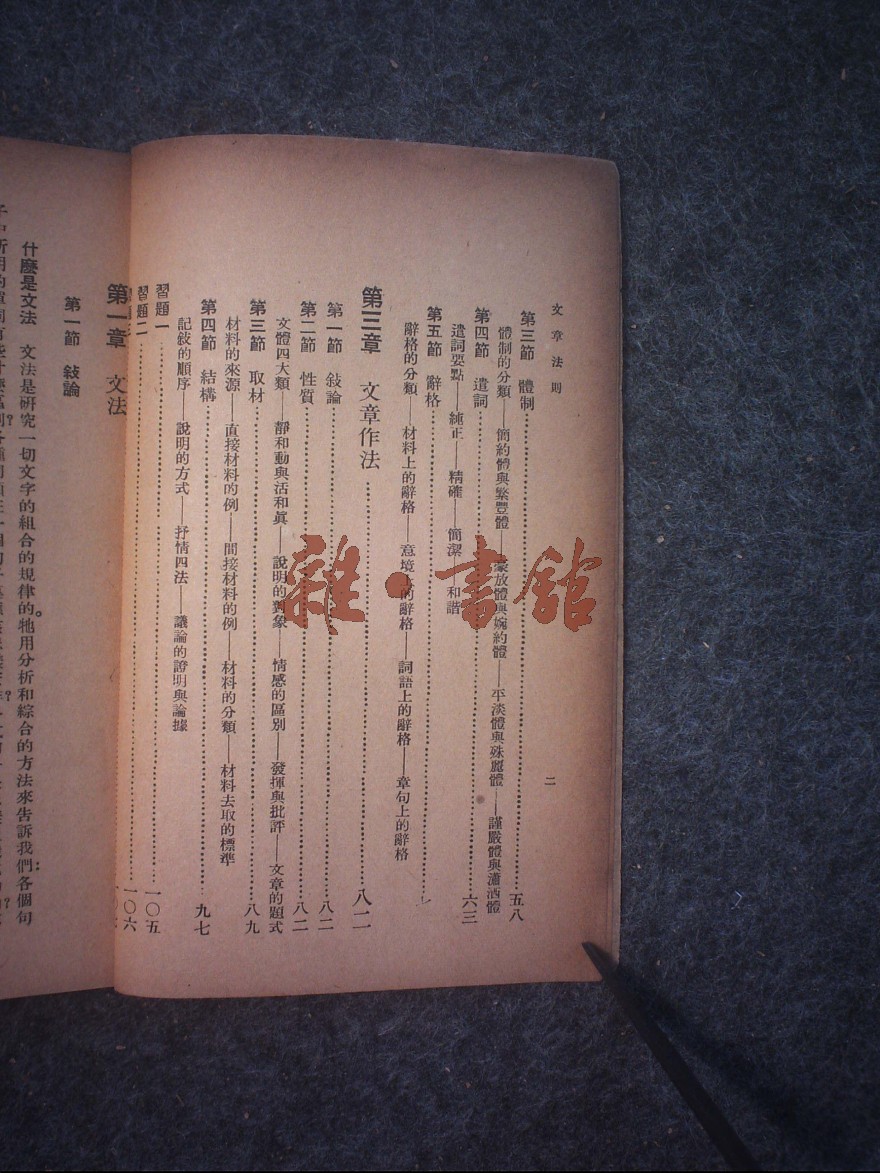 文章法則
二
第三節 體制……五八
體制的分類——簡約體與繁豐體——豪放體與婉約體——平淡體與殊麗體——謹嚴體與瀟洒體
第四節 遣詞……六三
遣詞要點——純正——精確——簡潔——和諧
第五節 辭格……
辭格的分類——材料上的辭格——意境上的辭格——詞語上的辭格——章句上的辭格
第三章 文章作法……八二
第一節 敍論……八二
第二節 性質……八二
文體四大類——靜和動與活和眞——說明的對象——情感的區別——發揮與批評——文章的題式
第三節 取材……八九
材料的來源——直接材料的例——間接材料的例——材料的分類——材料去取的標準
第四節 結構……九七
記敍的順序——說明的方式——抒情四法——議論的證明與論據
習題一……一〇五
習題二……一〇六
第一章 文法
第一節 敍論
什麼是文法 文法是硏究一切文字的組合的規律的。牠用分析和綜合的方法來告訴我們：各個句
雜·書館